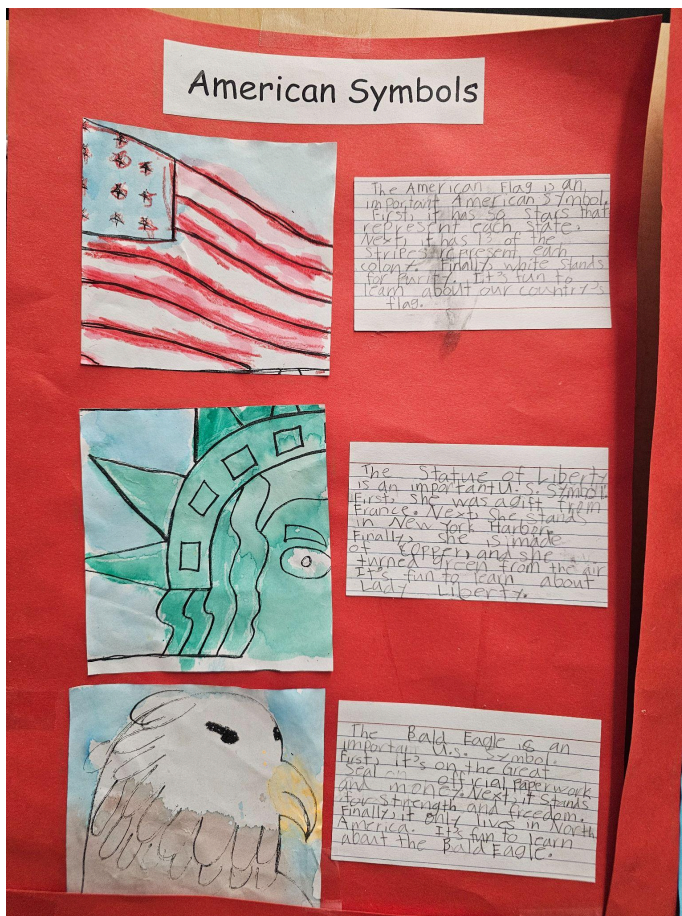 American Symbols
The American Flag is an
important American Symbol.
First, it has 50 stars that
represent each state.
Next, it has 13 of the
stripes represent each
colony. Finally, white stands
for purity. It's fun to
learn about our country's
flag.
The Statue of Liberty
is an important U.S. Symbol.
First, she was a gift from
France. Next, she stands
in New York Harbor.
Finally, she is made
of copper, and she
turned green from the air.
It's fun to learn about
Lady Liberty.
The Bald Eagle is an
important U.S. symbol.
First, it's on the Great
Seal on official paperwork
and money. Next, it stands
for strength and freedom.
Finally, it only lives in North
America. It's fun to learn
about the Bald Eagle.